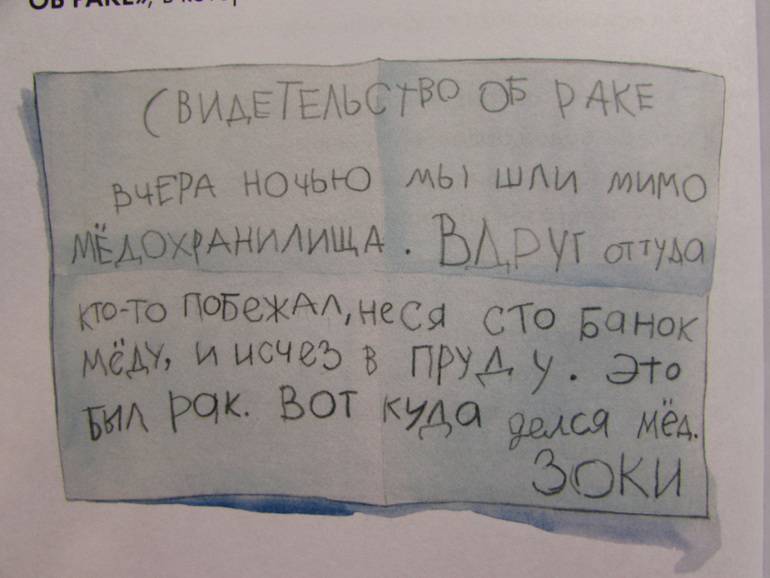 ОБ РАКЕ»,
СВИДЕТЕЛЬСТВО ОБ РАКЕ
ВЧЕРА НОЧЬЮ МЫ ШЛИ МИМО
МЁДОХРАНИЛИЩА. ВДРУГ оттуда
кто-то ПОБЕЖАЛ, неся сто банок
мёду, и исчез в ПРУДУ. Это
был рак. Вот куда делся мёд.
ЗОКИ